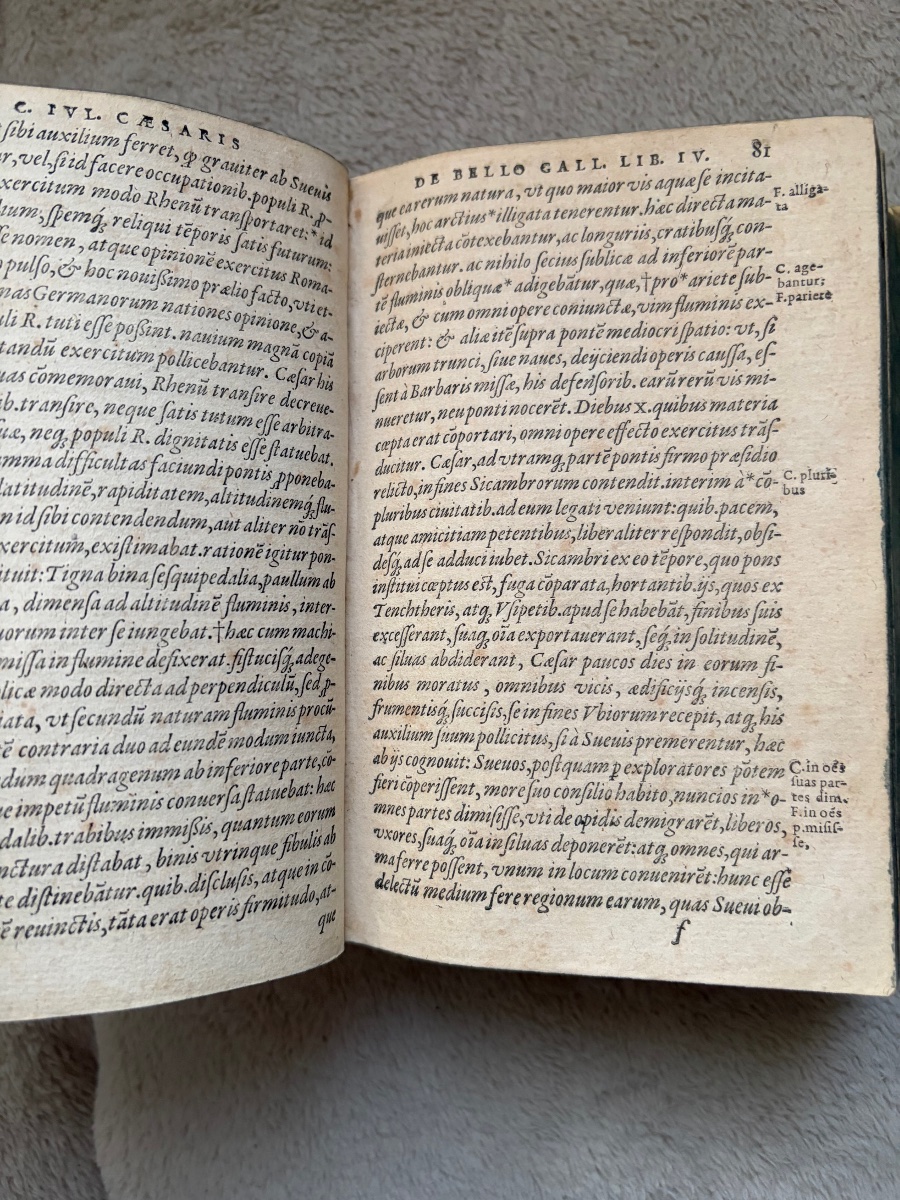 C. IVL. CÆSARIS
sibi auxilium ferret, ꝙ grauiter ab Sueuis
vel, si id facere occupationib. populi R. p-
xercitum modo Rhenū transportaret: * id
spemq́; reliqui tēporis satis futurum:
nomen, atque opinionē exercitus Roma-
pulso, & hoc nouißimo prælio facto, vti et-
nas Germanorum nationes opinione, & a-
uli R. tuti esse poßint. nauium magnā copiā
tandū exercitum pollicebantur. Cæsar his
uas cōmemoraui, Rhenū transire decreue-
ib. transire, neque satis tutum esse arbitra-
uæ, neq; populi R. dignitatis esse statuebat.
umma difficultas faciundi pontis ꝓponeba-
latitudinē, rapiditatem, altitudinemq́; flu-
n id sibi contendendum, aut aliter nō trās-
xercitum, existimabat. rationē igitur pon-
ituit: Tigna bina sesquipedalia, paullum ab
a, dimensa ad altitudinē fluminis, inter-
uorum inter se iungebat. † hæc cum machi-
missa in flumine defixerat. fistucisq́; adege-
licæ modo directa ad perpendiculū, sed ꝓ-
iata, vt secundū naturam fluminis procū-
tē contraria duo ad eundē modum iuncta,
dum quadragenum ab inferiore parte, cō-
ue impetū fluminis conuersa statuebat: hæc
dalib. trabibus immißis, quantum eorum
nctura distabat, binis vtrinque fibulis ab
te distinebātur. quib. disclusis, atque in cō-
ē reuinctis, tāta erat operis firmitudo, at-
que
DE BELLO GALL. LIB. IV. 81
que ea rerum natura, vt quo maior vis aquæ se incita-
uisset, hoc arctius * illigata tenerentur. hæc directa ma-
teria iniecta cōtexebantur, ac longuriis, cratibusq́; con-
sternebantur. ac nihilo secius sublicæ ad inferiorē par-
tē fluminis obliquæ * adigebātur, quæ, † pro * ariete sub-
iectæ, & cum omni opere coniunctæ, vim fluminis ex-
ciperent: & aliæ itē supra pontē mediocri spatio: vt, si
arborum trunci, siue naues, deijciendi operis caussa, es-
sent à Barbaris missæ, his defensorib. earū rerū vis mi-
nueretur, neu ponti nocerēt. Diebus x. quibus materia
cœpta erat cōportari, omni opere effecto exercitus trās-
ducitur. Cæsar, ad vtramq; partē pontis firmo præsidio
relicto, in fines Sicambrorum contendit. interim à * cō-
pluribus ciuitatib. ad eum legati veniunt: quib. pacem,
atque amicitiam petentibus, liberaliter respondit, obsi-
desq́; ad se adduci iubet. Sicambri ex eo tēpore, quo pons
institui cœptus est, fuga cōparata, hortantib. ijs, quos ex
Tenchtheris, atq; Vsipetib. apud se habebāt, finibus suis
excesserant, suaq́; oīa exportauerant, seq́; in solitudinē,
ac siluas abdiderant, Cæsar paucos dies in eorum fi-
nibus moratus, omnibus vicis, ædificijsq́; incensis,
frumentisq́; succisis, se in fines Vbiorum recepit, atq; his
auxilium suum pollicitus, si à Sueuis premerentur, hæc
ab ijs cognouit: Sueuos, postquam ꝑ exploratores pōtem
fieri cōperissent, more suo consilio habito, nuncios in * o-
mnes partes dimisisse, vti de opidis demigrarēt, liberos,
vxores, suaq́; oīa in siluas deponerēt: atq; omnes, qui ar-
ma ferre possent, vnum in locum conuenirēt: hunc esse
delectū medium fere regionum earum, quas Sueui ob-
f
F. alliga-
ta
C. age-
bantur:
F. pariete
C. pluri-
bus
C. in oēs
suas par-
tes dim.
F. in oēs
p. misis-
se,